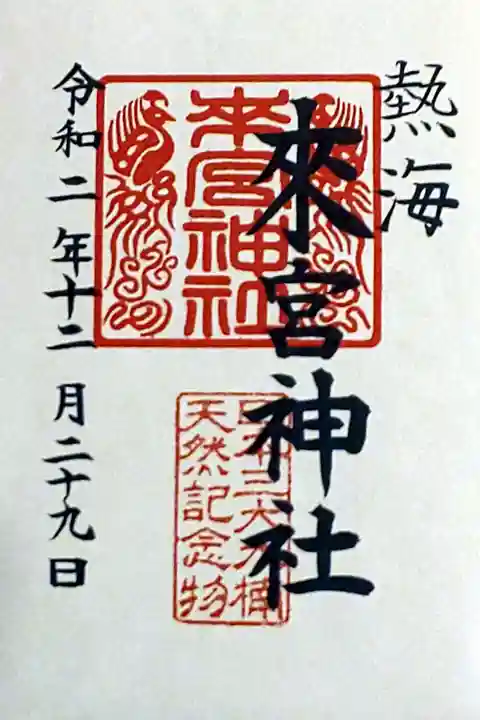 熱海
來宮神社
來宮神社
日本三大大楠
天然記念物
令和二年十二月二十九日